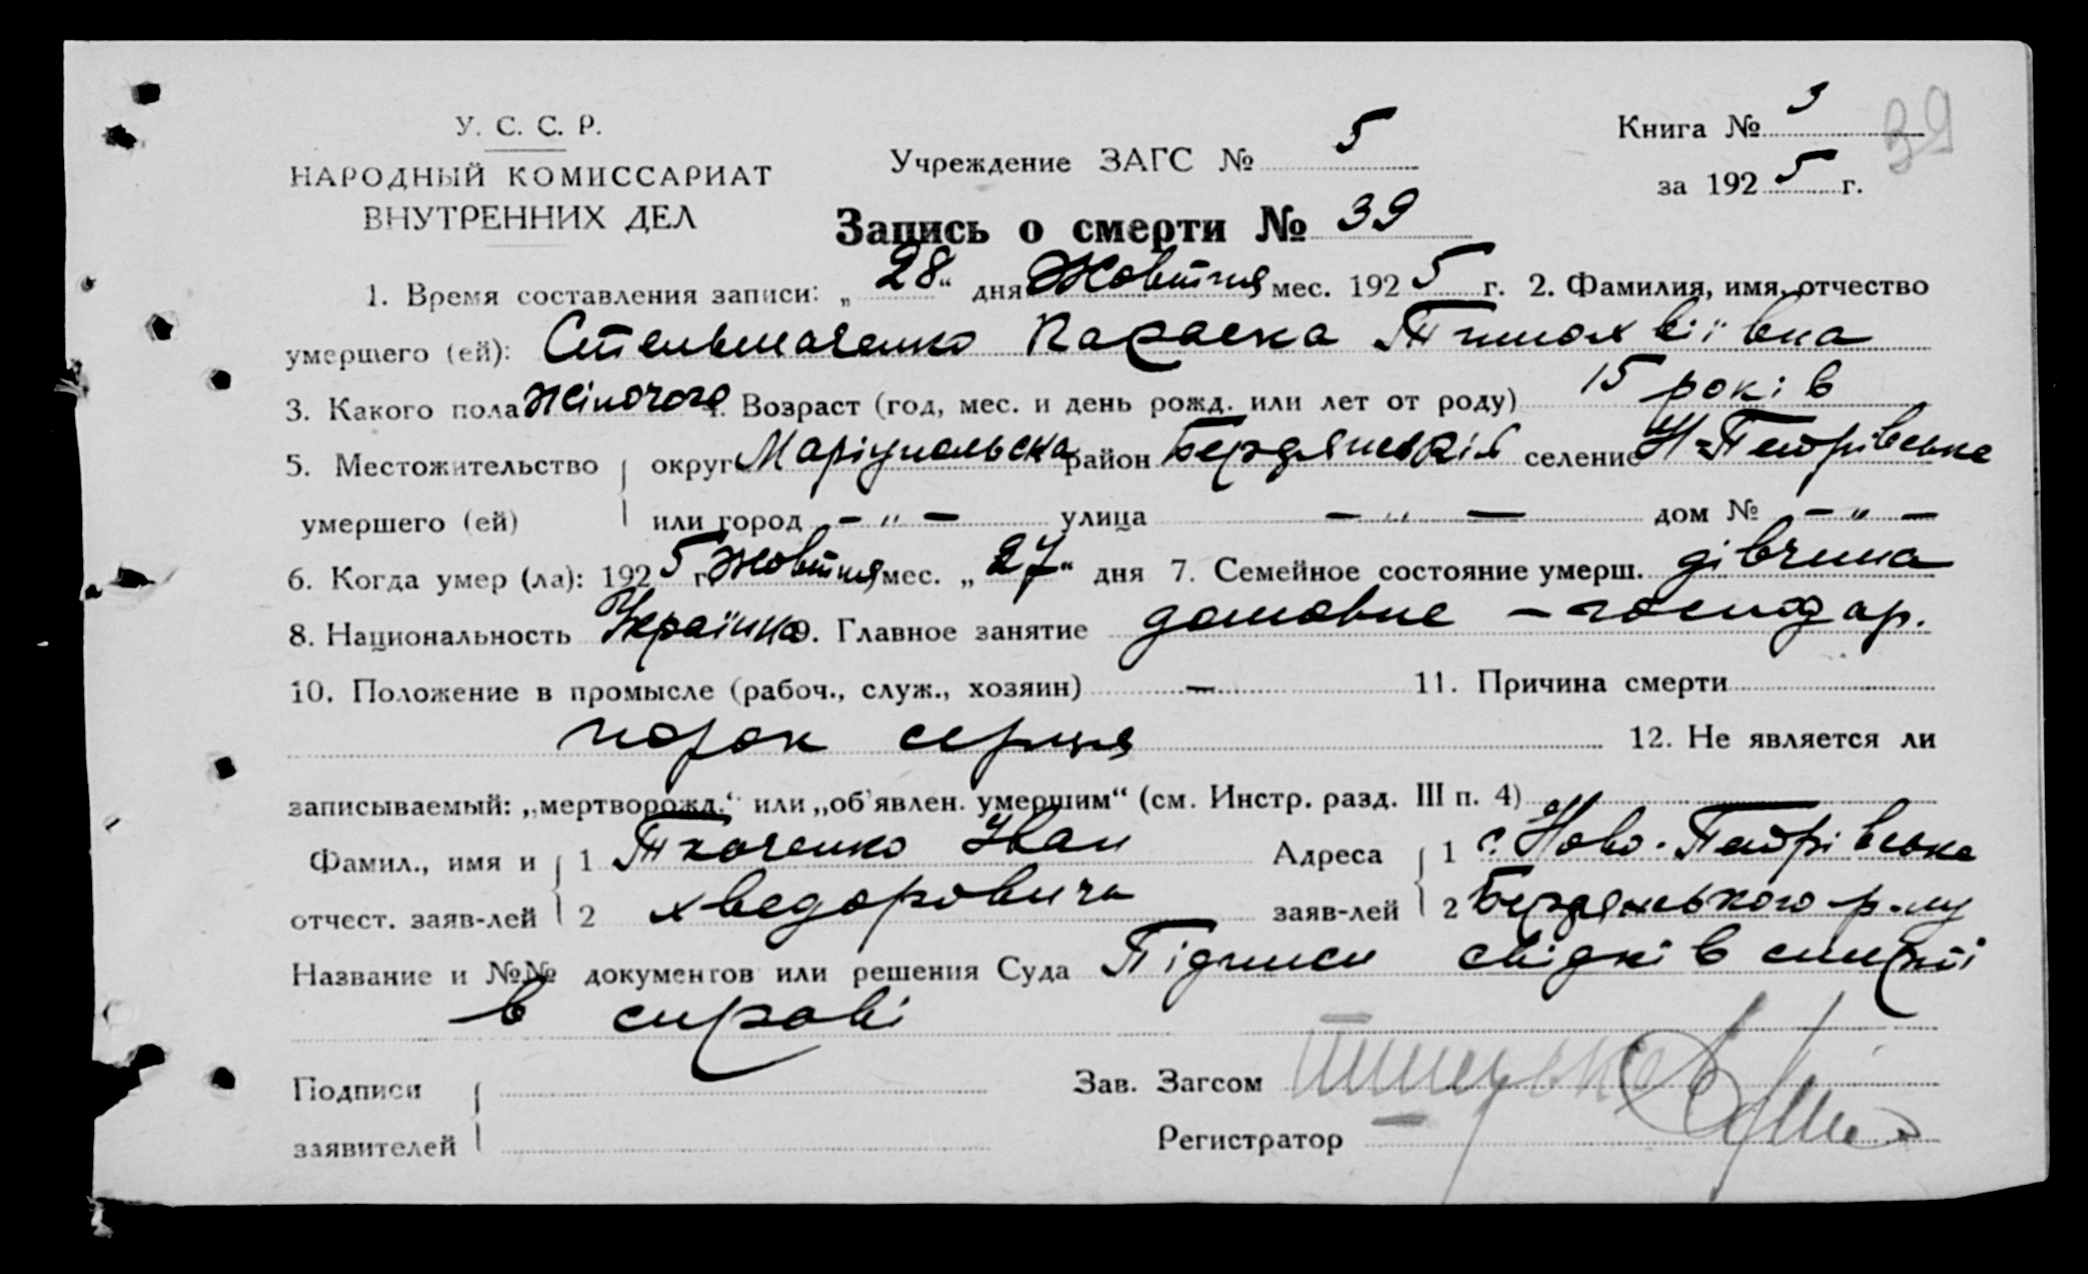 У. С. С. Р.
НАРОДНЫЙ КОМИССАРИАТ
ВНУТРЕННИХ ДЕЛ
Учреждение ЗАГС № 5
Книга № 3
39
за 1925 г.
Запись о смерти № 39
1. Время составления записи: „28“ дня Жовтня мес. 1925 г. 2. Фамилия, имя, отчество
умершего (ей): Стельмаченко Параска Тимохвіївна
3. Какого пола Жіночого 4. Возраст (год, мес. и день рожд. или лет от роду) 15 років
5. Местожительство умершего (ей) округ Маріупольска район Бердянський селение Н-Петрівське
или город — „ — улица — „ — дом № — „ —
6. Когда умер (ла): 1925 г. Жовтня мес. „27“ дня 7. Семейное состояние умерш. дівчина
8. Национальность Українка 9. Главное занятие домовне - господар.
10. Положение в промысле (рабоч., служ., хозяин) — 11. Причина смерти
порок серця 12. Не является ли
записываемый: „мертворожд.“ или „об'явлен. умершим“ (см. Инстр. разд. III п. 4)
Фамил., имя и отчест. заяв-лей 1 Ткаченко Іван Адреса заяв-лей 1 с. Ново-Петрівське
2 Хведорович 2 Бердянського р-ну
Название и №№ документов или решения Суда Підписи свідків смерті
в справі
Подписи заявителей
Зав. Загсом
Регистратор